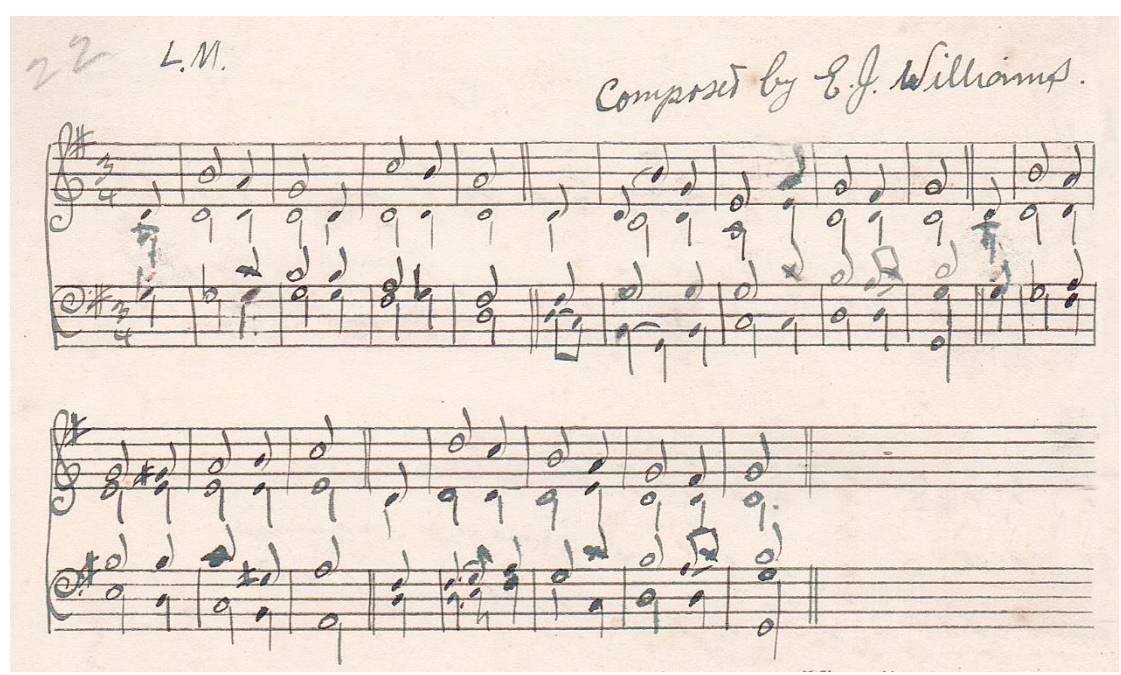 22
L.M.
Composed by E.J. Williams.
3
4
3
4